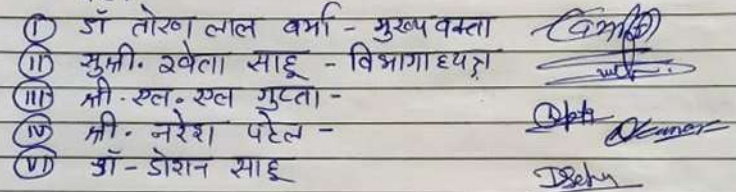 (I) डॉ तोरण लाल वर्मा - मुख्य वक्ता
(II) सुश्री. श्वेता साहू - विभागाध्यक्ष
(III) श्री. एल. एल गुप्ता -
(IV) श्री. नरेश पटेल -
(VI) डॉ - डोशन साहू